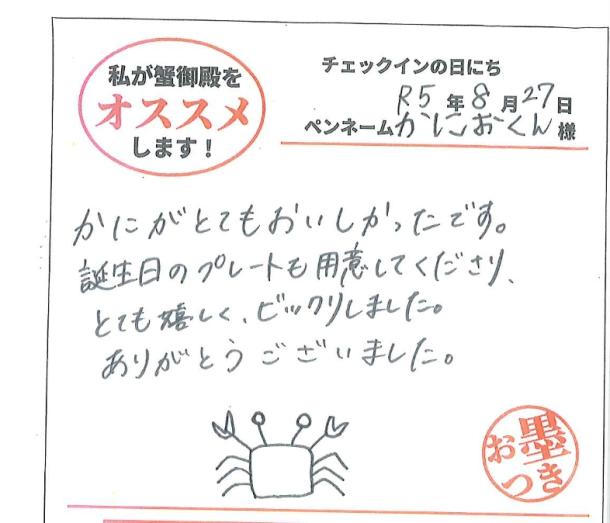 私が蟹御殿を
オススメ
します！
チェックインの日にち
R5年8月27日
ペンネームかにおくん様
かにがとてもおいしかったです。
誕生日のプレートも用意してくださり、
とても嬉しく、ビックリしました。
ありがとうございました。
お墨
つき